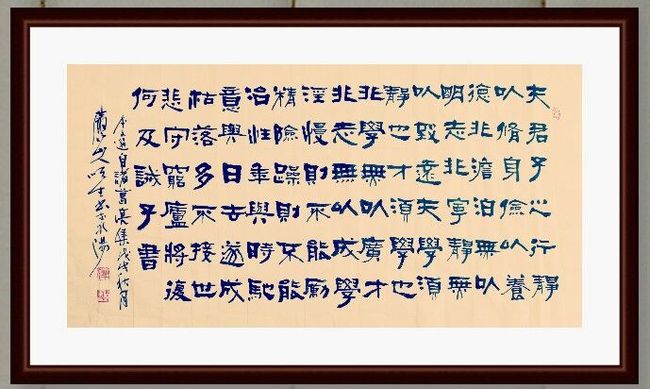 夫君子之行靜
以脩身儉以養
德非澹泊無以
明志非寧靜無
以致遠夫學須
靜也才須學也
非學無以廣才
非志無以成學
淫慢則不能勵
精險躁則不能
治性年與時馳
意與日去遂成
枯落多不接世
悲守窮廬將復
何及誡子書
選自諸葛亮集戊戌秋月